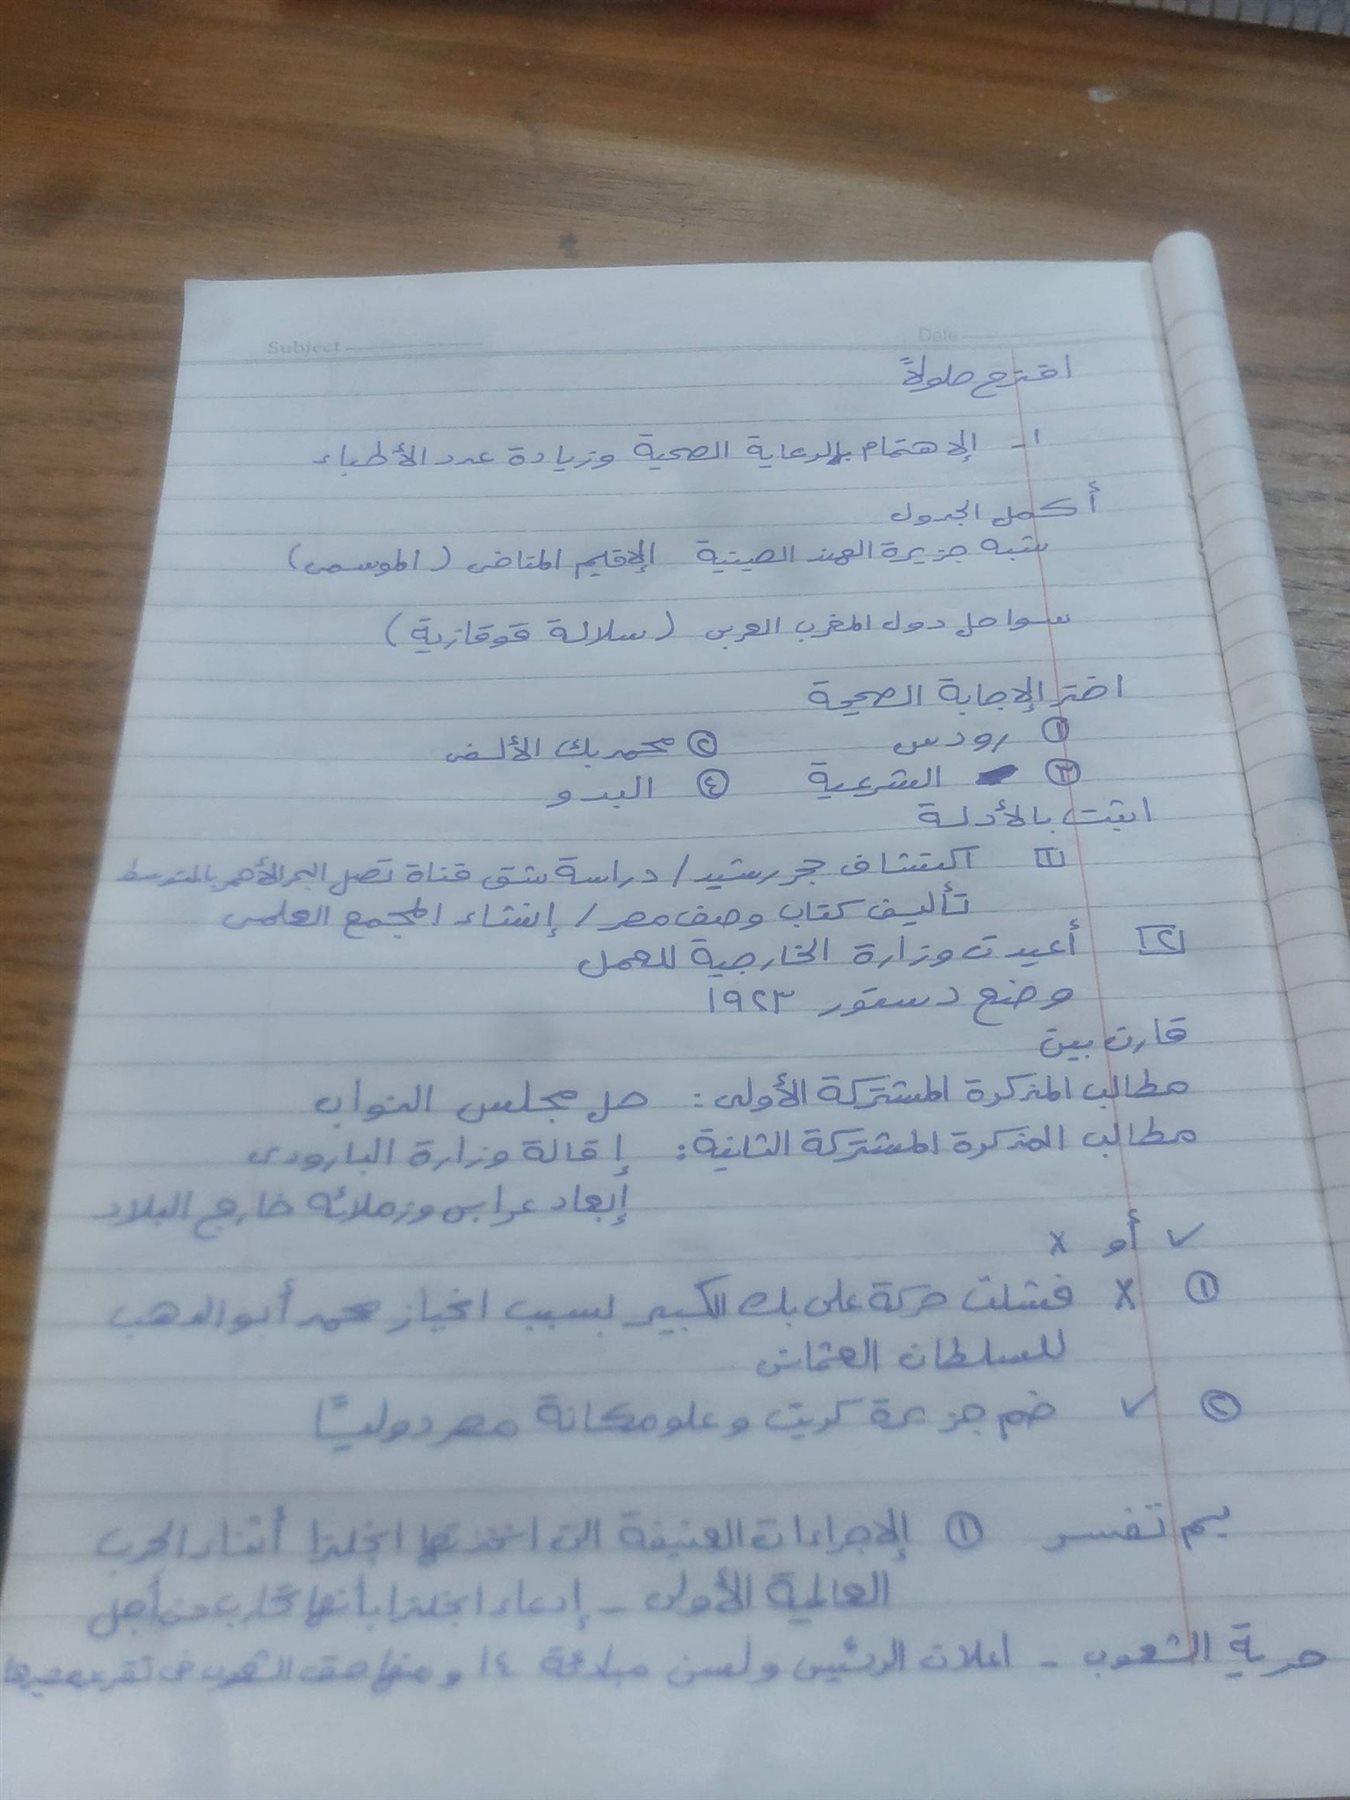 Subject
Date
اقترح حلولاً
١- الإهتمام بالرعاية الصحية وزيادة عدد الأطباء
أكمل الجدول
شبه جزيرة الهند الصينية الإقليم المناخى (الموسمى)
سواحل دول المغرب العربى (سلالة قوقازية)
اختر الإجابة الصحيحة
① رودس ② محمد بك الألفى
③ الشرعية ④ البدو
اثبت بالأدلة
١ اكتشاف حجر رشيد / دراسة شق قناة تصل البحر الأحمر بالمتوسط
تأليف كتاب وصف مصر / إنشاء المجمع العلمى
٢ أعيدت وزارة الخارجية للعمل
وضع دستور ١٩٢٣
قارن بين
مطالب المذكرة المشتركة الأولى: حل مجلس النواب
مطالب المذكرة المشتركة الثانية: إقالة وزارة البارودى
إبعاد عرابى وزملائه خارج البلاد
✓ أو x
① X فشلت حركة على بك الكبير بسبب انحياز محمد أبو الدهب
للسلطان العثمانى
② ✓ ضم جزيرة كريت وعلو مكانة مصر دوليًا
بم تفسر ① الإجراءات العنيفة التى اتخذتها انجلترا أثناء الحرب
العالمية الأولى - إدعاء انجلترا بأنها تحارب من أجل
حرية الشعوب - اعلان الرئيس ولسن مبادئه ١٤ ومنها حق الشعوب فى تقرير مصيرها